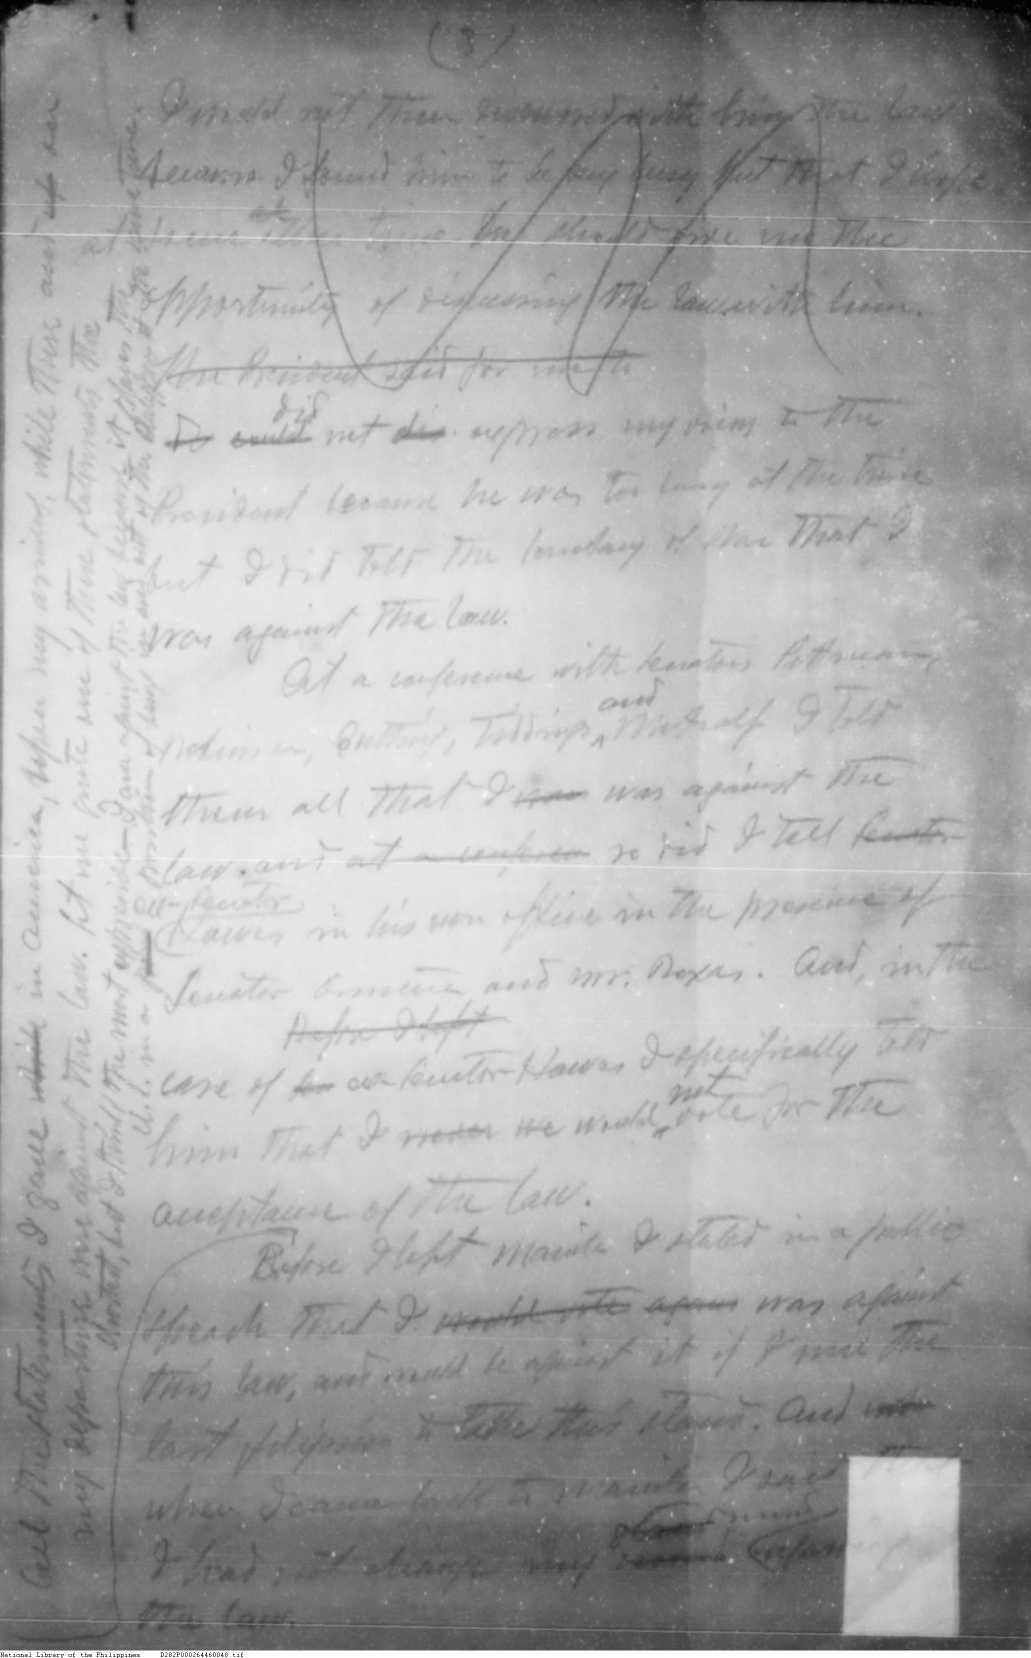 (3)
I could not then discuss with him the law
because I found him to be very busy but that I hope
some other time he should give me the
opportunity of discussing the law with him.
The President said for me to
I could did not dis express my views to the
President because he was too busy at the time
but I did told the Secretary of War that I
was against the law.
At a conference with Senators Pittman,
Robinson, Cutting, Tydings, and Metcalf I told
them all that I was was against the
law. and at a conferen so did I tell Senator
Senator
Hawes in his own office in the presence of
Senator Osmeña and Mr. Roxas. And, in the
Before I left
case of Senator Hawes I specifically told
him that I never we would not vote for the
acceptance of the law.
Before I left Manila I stated in a public
speech that I would vote agains was against
this law, and would be against it if I were the
last Filipino to take this stand. And
when I came back to Manila I said
I had not changed my mind
the law.
All the statements I gave while in America, before my arrival, while there and after
my departure were against the law. Let me quote one of these statements, the
shortest, but I think the most expressive — I am against the law because it places the
U.S. in a position of being in and out of the Philippines at the same time.
National Library of the Philippines D282P000264460048.tif